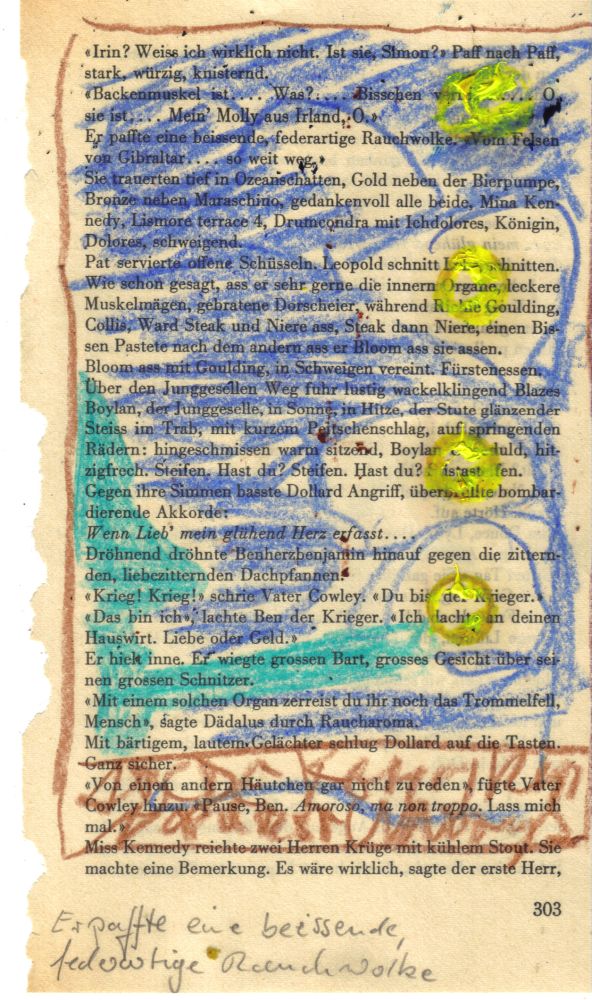 «Irin? Weiss ich wirklich nicht. Ist sie, Simon?» Paff nach Paff,
stark, würzig, knisternd.
«Backenmuskel ist.... Was?.... Bisschen O,
sie ist.... Mein' Molly aus Irland, O.»
Er paffte eine beissende, federartige Rauchwolke. «Vom Felsen
von Gibraltar.... so weit weg.»
Sie trauerten tief in Ozeanschatten, Gold neben der Bierpumpe,
Bronze neben Maraschino, gedankenvoll alle beide, Mina Ken-
nedy, Lismore terrace 4, Drumcondra mit Ichdolores, Königin,
Dolores, schweigend.
Pat servierte offene Schüsseln. Leopold schnitt
Wie schon gesagt, ass er sehr gerne die innern Organe, leckere
Muskelmägen, gebratene Dorscheier, während Richie Goulding,
Collis, Ward Steak und Niere ass, Steak dann Niere, einen Bis-
sen Pastete nach dem andern ass er Bloom ass sie assen.
Bloom ass mit Goulding, in Schweigen vereint. Fürstenessen.
Über den Junggesellen Weg fuhr lustig wackelklingend Blazes
Boylan, der Junggeselle, in Sonne, in Hitze, der Stute glänzender
Steiss im Trab, mit kurzem Peitschenschlag, auf springenden
Rädern: hingeschmissen warm sitzend, Boylan hit-
zigfrech. Steifen. Hast du? Steifen. Hast du?
Gegen ihre Stimmen basste Dollard Angriff, überbrüllte bombar-
dierende Akkorde:
Wenn Lieb' mein glühend Herz erfasst....
Dröhnend dröhnte Benherzbenjamin hinauf gegen die zittern-
den, liebezitternden Dachpfannen.
«Krieg! Krieg!» schrie Vater Cowley. «Du bist der Krieger.»
«Das bin ich», lachte Ben der Krieger. «Ich dachte an deinen
Hauswirt. Liebe oder Geld.»
Er hielt inne. Er wiegte grossen Bart, grosses Gesicht über sei-
nen grossen Schnitzer.
«Mit einem solchen Organ zerreist du ihr noch das Trommelfell,
Mensch», sagte Dädalus durch Raucharoma.
Mit bärtigem, lautem Gelächter schlug Dollard auf die Tasten.
Ganz sicher.
«Von einem andern Häutchen gar nicht zu reden», fügte Vater
Cowley hinzu. «Pause, Ben. Amoroso, ma non troppo. Lass mich
mal.»
Miss Kennedy reichte zwei Herren Krüge mit kühlem Stout. Sie
machte eine Bemerkung. Es wäre wirklich, sagte der erste Herr,
303
Er paffte eine beissende,
federartige Rauchwolke